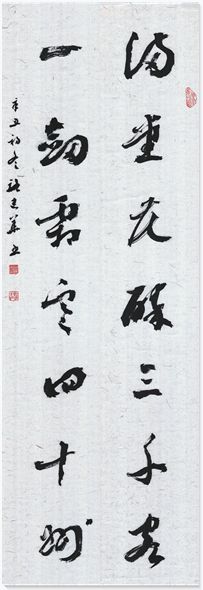 满堂花醉三千客
一剑霜寒四十州
辛丑初冬 建华书